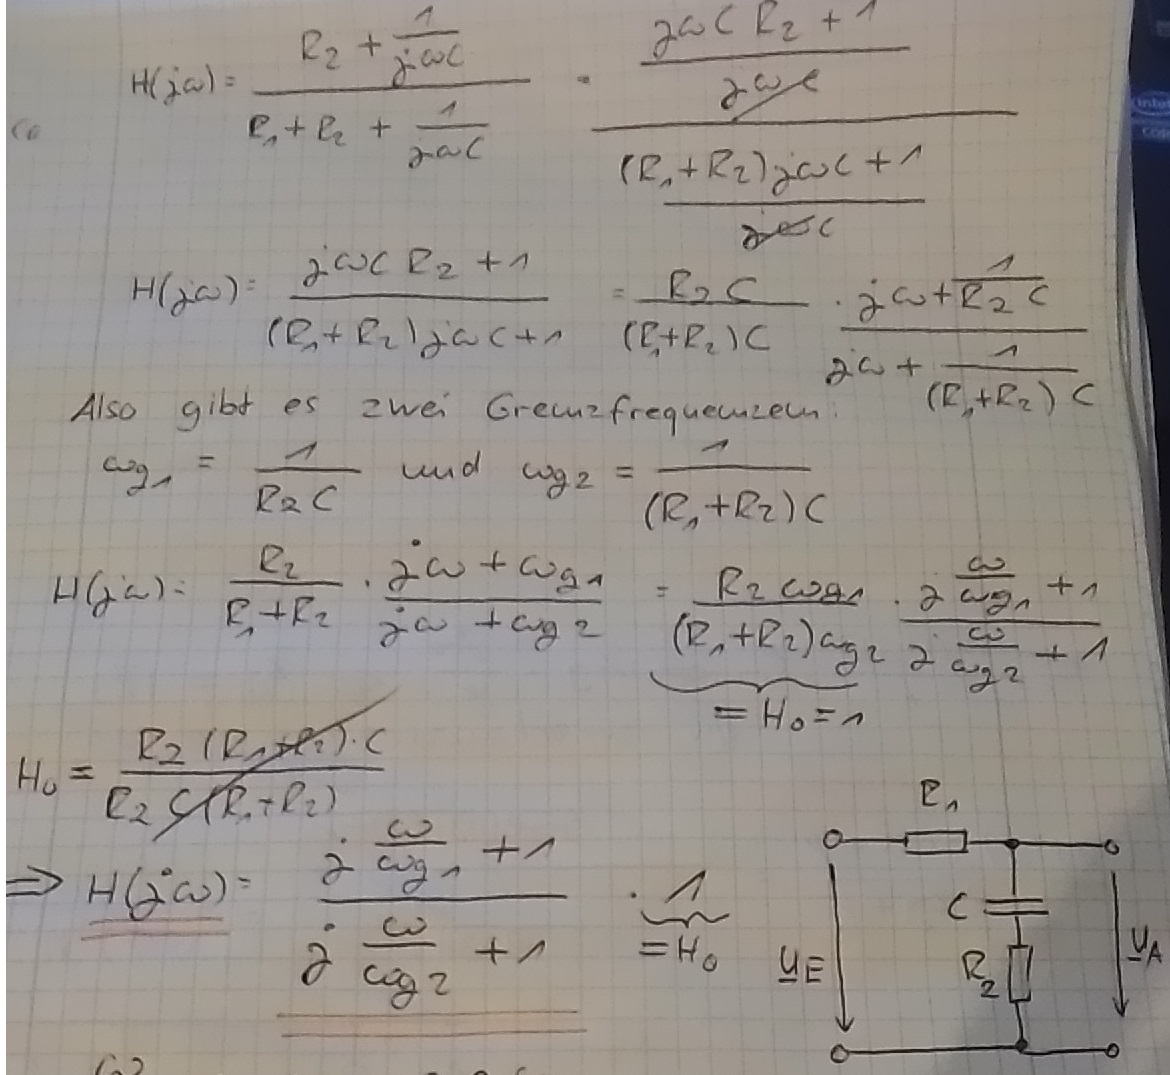 H(jω) = (R₂ + 1/(jωC)) / (R₁ + R₂ + 1/(jωC)) = ((jωC R₂ + 1)/(jωC)) / (((R₁+R₂)jωC + 1)/(jωC))
H(jω) = (jωC R₂ + 1) / ((R₁+R₂)jωC + 1) = (R₂C)/((R₁+R₂)C) · (jω + 1/(R₂C)) / (jω + 1/((R₁+R₂)C))
Also gibt es zwei Grenzfrequenzen:
ωg₁ = 1/(R₂C) und ωg₂ = 1/((R₁+R₂)C)
H(jω) = R₂/(R₁+R₂) · (jω + ωg₁)/(jω + ωg₂) = (R₂ωg₁)/((R₁+R₂)ωg₂) · (j ω/ωg₁ + 1)/(j ω/ωg₂ + 1)
= H₀ = 1
H₀ = (R₂(R₁+R₂)·C)/(R₂C(R₁+R₂))
⇒ H(jω) = (j ω/ωg₁ + 1)/(j ω/ωg₂ + 1) · 1
= H₀
R₁
C
R₂
UE
UA
intel